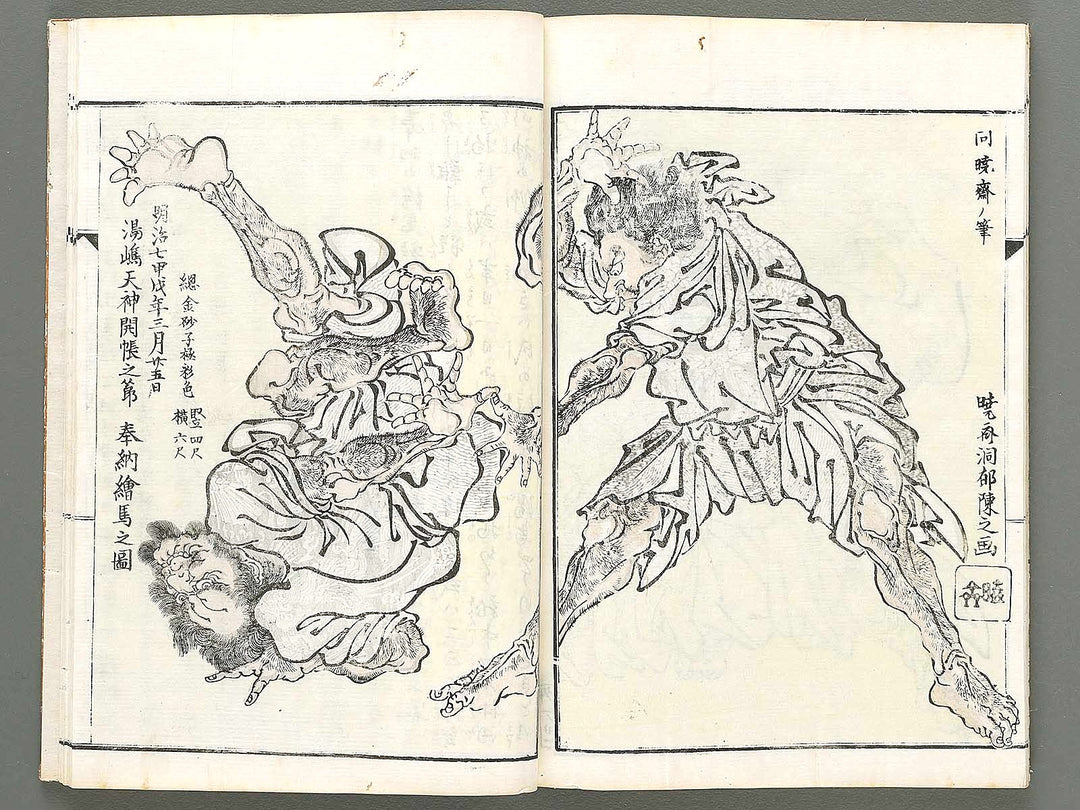 同曉齋ノ筆
曉斎洞郁陳之画
總金砂子極彩色
竪四尺
横六尺
明治七甲戌年三月廿五日
湯嶋天神開帳之節 奉納繪馬之圖